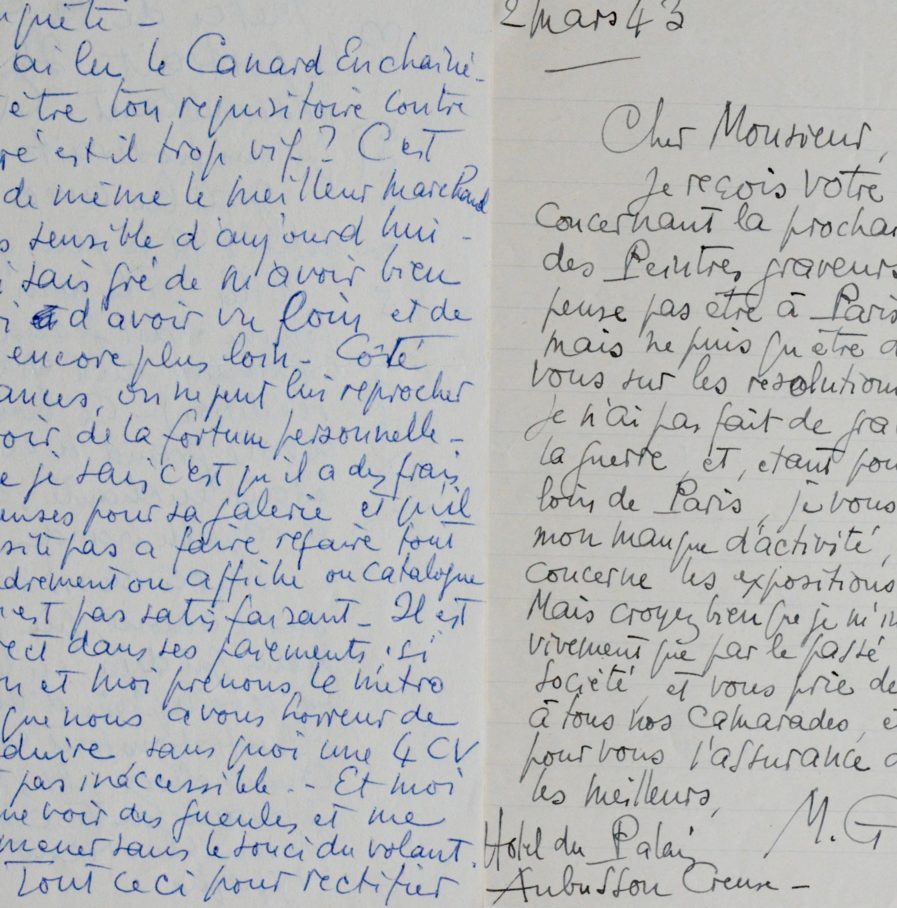 quête -
ai lu le Canard Enchaîné -
être ton requisitoire contre
ré est il trop vif? C'est
de même le meilleur marchand
s sensible d'aujourd'hui -
sais gré de m'avoir bien
d'avoir vu loin et de
encore plus loin - Côté
ances, on ne peut lui reprocher
oir de la fortune personnelle -
e je sais c'est qu'il a des frais
enses pour sa galerie et qu'il
site pas a faire refaire tout
drement ou affiche ou catalogue
n'est pas satisfaisant - Il est
rect dans ses paiements, si
n et moi prenons le metro
que nous avons horreur de
duire, sans quoi une 4 CV
pas inaccessible. - Et moi
me voir des gueules et me
mener sans le souci du volant.
Tout ceci pour rectifier
2 mars 43
Cher Monsieur,
Je reçois votre
concernant la prochai
des Peintres graveurs
pense pas être à Paris
mais ne puis qu'être d
vous sur les resolution
Je n'ai pas fait de gra
la guerre, et, etant pou
loin de Paris, je vous
mon manque d'activité,
concerne les expositions
Mais croyez bien que je m'in
vivement que par le passé
Société, et vous prie de
à tous nos camarades, e
pour vous l'assurance d
les meilleurs,
M. G
Hotel du Palais
Aubusson Creuse -